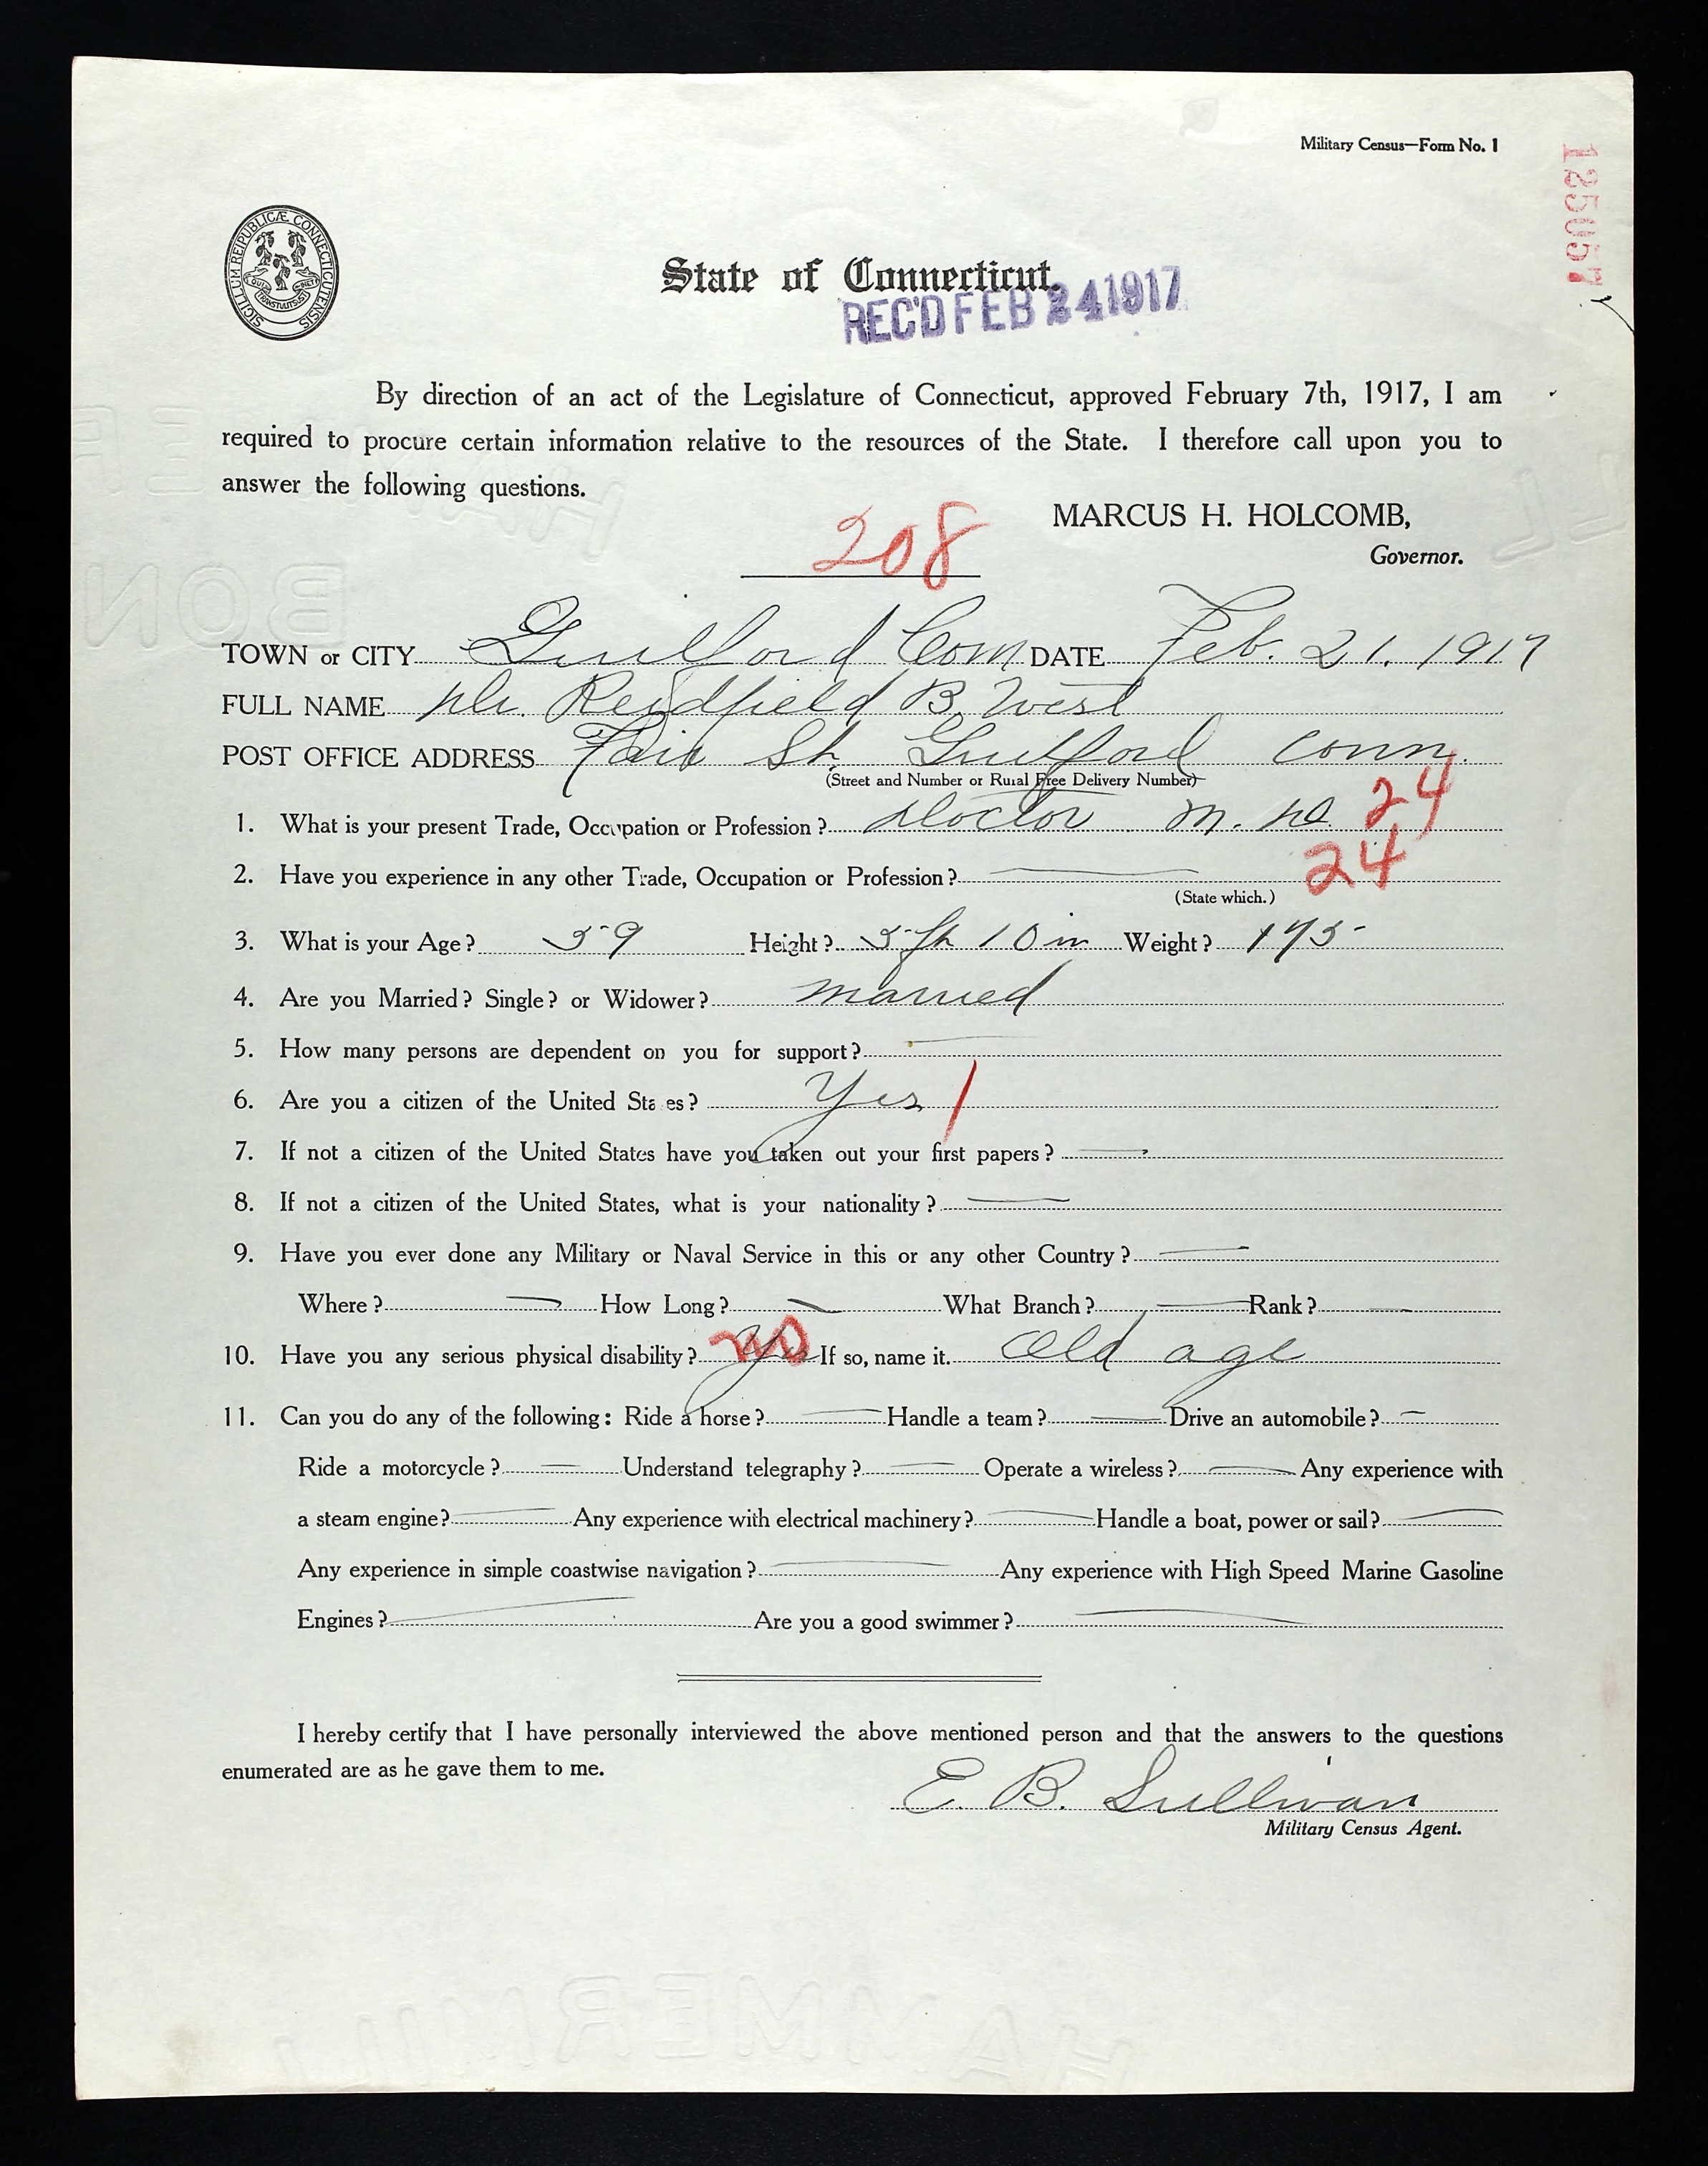 Military Census—Form No. 1
125057
SIGILLUM REIPUBLICÆ CONNECTICUTENSIS
QUI TRANSTULIT SUSTINET
State of Connecticut.
REC'D FEB 24 1917
By direction of an act of the Legislature of Connecticut, approved February 7th, 1917, I am
required to procure certain information relative to the resources of the State. I therefore call upon you to
answer the following questions.
MARCUS H. HOLCOMB,
Governor.
208
TOWN or CITY Guilford Conn DATE Feb. 21. 1917
FULL NAME Dr. Redfield B. West
POST OFFICE ADDRESS Fair St. Guilford Conn.
(Street and Number or Rural Free Delivery Number)
1. What is your present Trade, Occupation or Profession? Doctor M. D. 24
2. Have you experience in any other Trade, Occupation or Profession? — 24
(State which.)
3. What is your Age? 59 Height? 5 ft 10 in Weight? 175
4. Are you Married? Single? or Widower? married
5. How many persons are dependent on you for support? —
6. Are you a citizen of the United States? Yes /
7. If not a citizen of the United States have you taken out your first papers? —
8. If not a citizen of the United States, what is your nationality? —
9. Have you ever done any Military or Naval Service in this or any other Country? —
Where? — How Long? — What Branch? — Rank? —
10. Have you any serious physical disability? Yes no If so, name it. Old age
11. Can you do any of the following: Ride a horse? — Handle a team? — Drive an automobile? —
Ride a motorcycle? — Understand telegraphy? — Operate a wireless? — Any experience with
a steam engine? — Any experience with electrical machinery? — Handle a boat, power or sail? —
Any experience in simple coastwise navigation? — Any experience with High Speed Marine Gasoline
Engines? — Are you a good swimmer? —
I hereby certify that I have personally interviewed the above mentioned person and that the answers to the questions
enumerated are as he gave them to me.
E. B. Sullivan
Military Census Agent.
HAMMERMILL